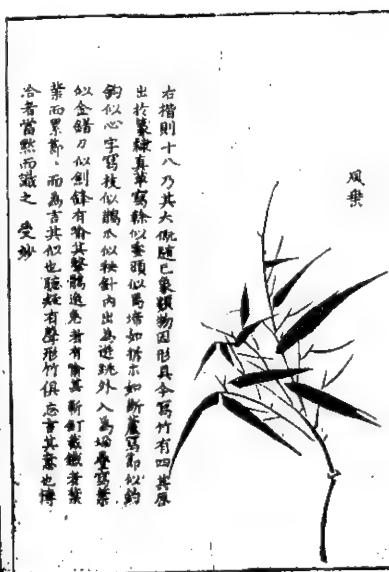 風葉
右楷則十八乃其大槩隨已象類物因形具令寫竹有四其原
出於篆隸真草寫榦似蚕頭似馬蹄如折木如斷蘆寫節似釣
鈎似心字寫枝似鵲爪似秧針內出為迸跳外入為垛疊寫葉
似金錯刀似劍鋒有喻其驚鴉逸兔者有喻其斬釘截鐵者葉
葉而累節、而為言其似也聽疑有聲形竹俱忘言其意也博
洽者當黙而識之 受妙